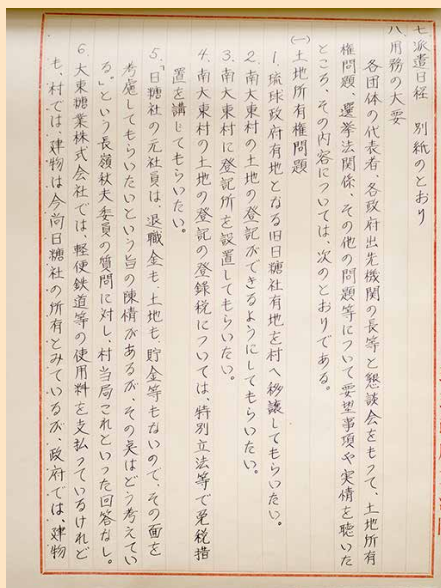 七派遣日経　別紙のとおり
八用務の大要
各団体の代表者、各政府出先機関の長等と懇談会をもつて、土地所有
権問題、選挙法関係、その他の問題等について要望事項や実情を聴いた
ところ、その内容については、次のとおりである。
(一)土地所有権問題
1. 琉球政府有地となる旧日糖社有地を村へ移譲してもらいたい。
2. 南大東村の土地の登記ができるようにしてもらいたい。
3. 南大東村に登記所を設置してもらいたい。
4. 南大東村の土地の登記の登録税については、特別立法等で免税措
置を講じてもらいたい。
5. 「日糖社の元社員は、退職金も、土地も、貯金等もないので、その面を
考慮してもらいたいという旨の陳情があるが、その点はどう考えてい
る。」という長嶺秋夫委員の質問に対し、村当局これといった回答なし。
6. 大東糖業株式会社では、軽便鉄道等の使用料を支払っているけれど
も、村では、建物は今尚日糖社の所有とみているが、政府では、建物